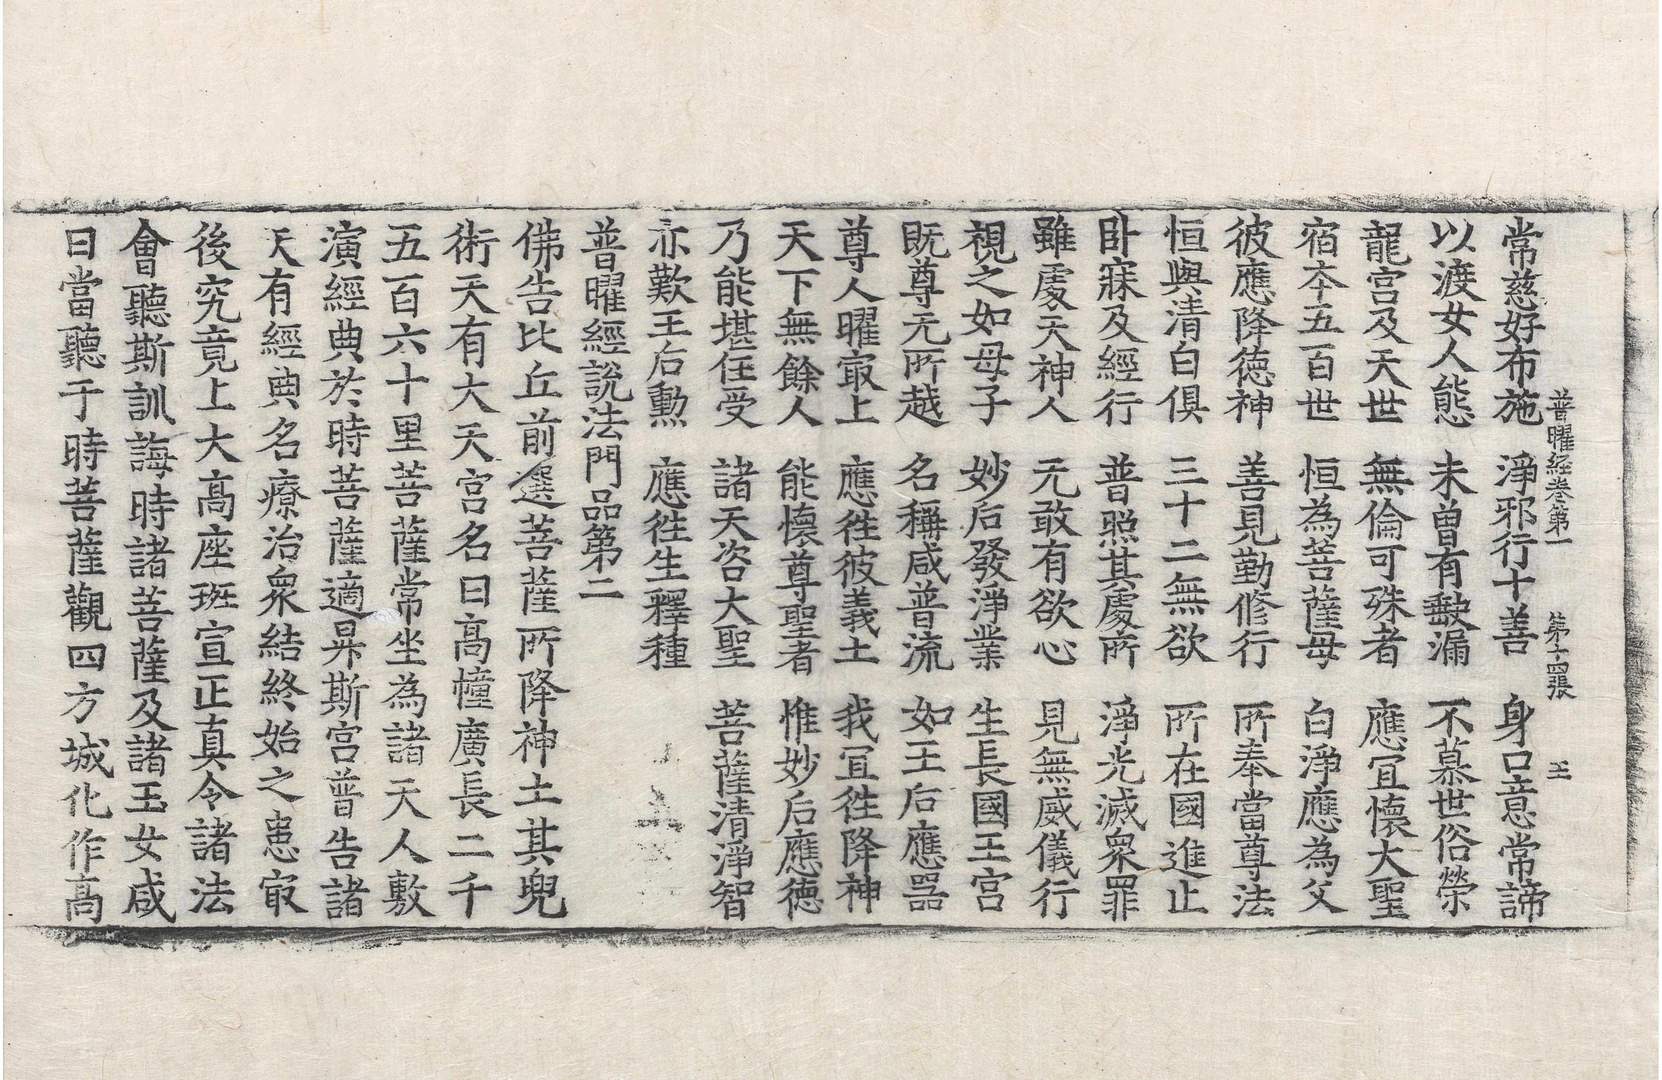 普曜経卷第一 第十四張 王
常慈好布施 淨邪行十善 身口意常諦
以渡女人態 未曾有𡙇漏 不慕世俗榮
龍宮及天世 無倫可殊者 應冝懷大聖
宿夲五百世 恒為菩薩母 白淨應為父
彼應降德神 善見勤修行 所奉當尊法
恒與清白俱 三十二無欲 所在國進止
卧寐及經行 普照其處所 淨光滅衆罪
雖處天神人 无敢有欲心 見無威儀行
視之如母子 妙后發淨業 生長國王宮
既尊无所越 名稱咸普流 如王后應噐
尊人曜㝡上 應徃彼義土 我冝徃降神
天下無餘人 能懷尊聖者 惟妙后應德
乃能堪任受 諸天咨大聖 菩薩清淨智
亦歎王后勲 應徃生釋種
普曜經說法門品第二
佛告比丘前選菩薩所降神土其兜
術天有大天宮名曰高幢廣長二千
五百六十里菩薩常坐為諸天人敷
演經典於時菩薩適昇斯宮普告諸
天有經典名療治衆結終始之患㝡
後究竟上大高座班宣正真令諸法
會聽斯訓誨時諸菩薩及諸玉女咸
曰當聽于時菩薩觀四方城化作高